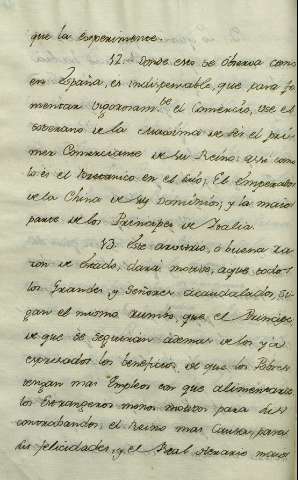 que la experimente.
12. Donde esto se observa como
en España, es indispensable, que para fo-
mentar vigorosam.te el Comercio, use el
soberano de la maxima de ser el pri-
mer Comerciante de su Reino: asi como
lo es el Britanico en el suio; El Emperador
de la China de sus Dominios; y la maior
parte de los Principes de Italia.
13. Este arvitrio, o buena ra-
zon de Estado, dará motivo, a que todos
los Grandes, y Señores acaudalados, si-
gan el mismo rumbo que el Principe
de que se seguirán ademas de los ya
expresados los beneficios de que los Pobres
tengan mas Empleos con que alimentarse
los Estrangeros menos motivos para sus
contrabandos, el Reino mas Causa, para
sus felicidades, y el Real erario maior